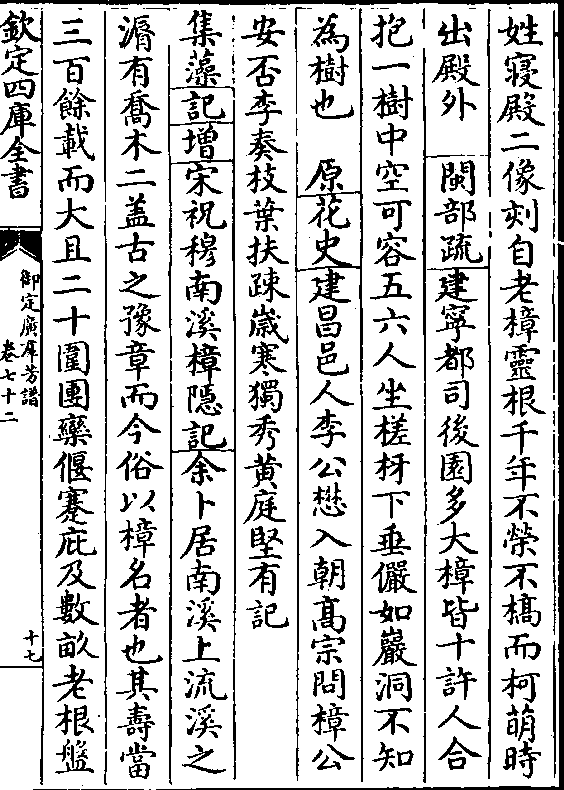 姓寢殿二像刻自老樟靈根千年不榮不槁而柯萌時
出殿外　閩部疏建寧都司後園多大樟皆十許人合
抱一樹中空可容五六人坐槎枒下垂儼如巖洞不知
為樹也　原花史建昌邑人李公懋入朝髙宗問樟公
安否李奏枝葉扶疎嵗寒獨秀黄庭堅有記
集藻記增宋祝穆南溪樟隱記余卜居南溪上流溪之
漘有喬木二盖古之豫章而今俗以樟名者也其壽當
三百餘載而大且二十圍團欒偃蹇庇及數畝老根盤
欽定四庫全書
御定廣羣芳譜
卷七十二
十七